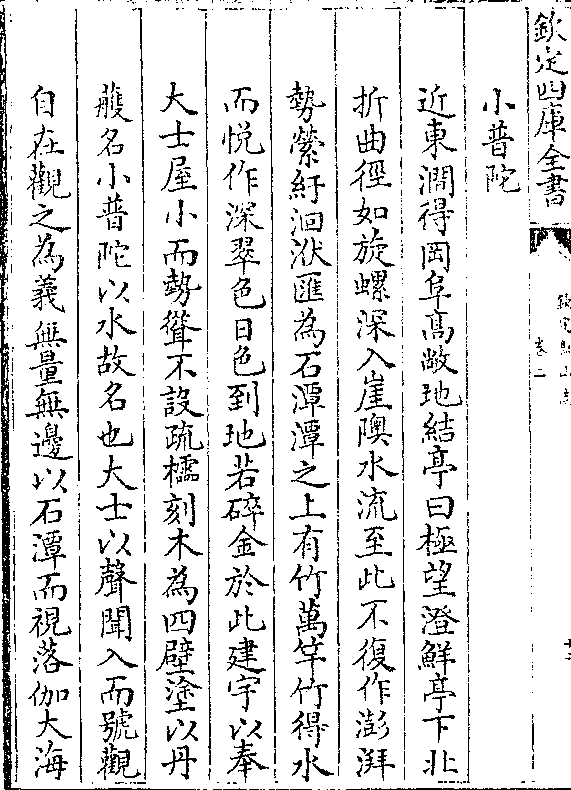 欽定四庫全書
欽定盤山志
卷二
十二
小普陀
近東澗得岡阜髙敞地結亭曰極望澄鮮亭下北
折曲徑如旋螺深入崖隩水流至此不復作澎湃
勢縈紆洄洑匯為石潭潭之上有竹萬竿竹得水
而悦作深翠色日色到地若碎金於此建宇以奉
大士屋小而勢聳不設疏櫺刻木為四壁塗以丹
雘名小普陀以水故名也大士以聲聞入而號觀
自在觀之為義無量無邊以石潭而視落伽大海